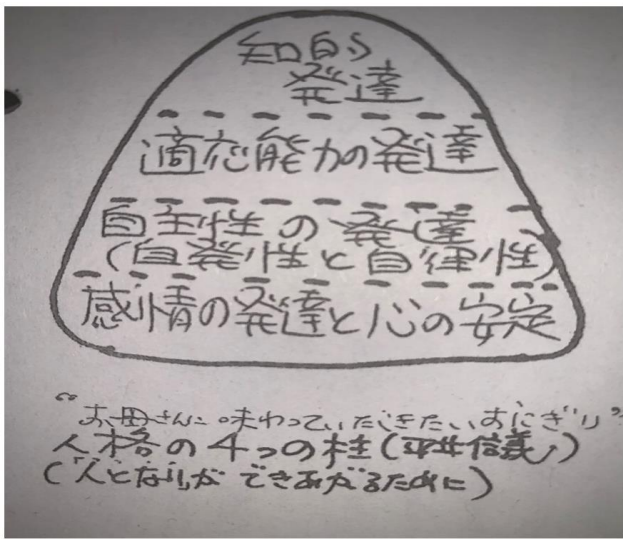 知的
発達
適応能力の発達
自主性の発達
(自発性と自律性)
感情の発達と心の安定
“お母さんに味わっていただきたいおにぎり”
人格の4つの柱(平井信義)
(「人となり」ができあがるために)